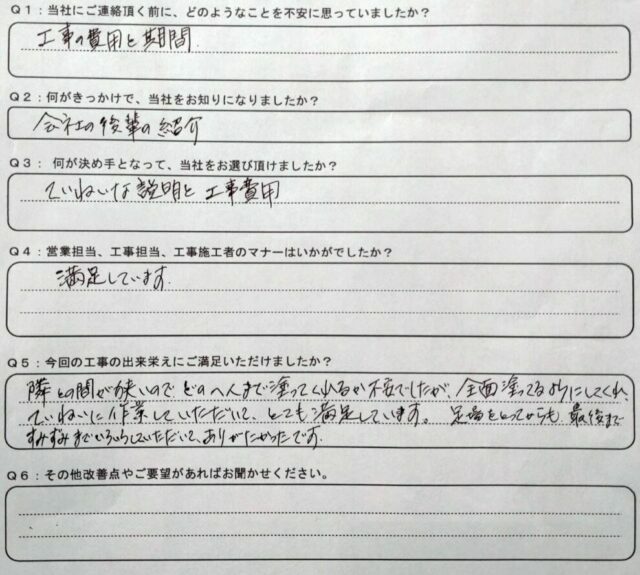 Q1：当社にご連絡頂く前に、どのようなことを不安に思っていましたか？
工事の費用と期間
Q2：何がきっかけで、当社をお知りになりましたか？
会社の後輩の紹介
Q3： 何が決め手となって、当社をお選び頂けましたか？
ていねいな説明と工事費用
Q4：営業担当、工事担当、工事施工者のマナーはいかがでしたか？
満足しています。
Q5：今回の工事の出来栄えにご満足いただけましたか？
隣との間が狭いのでどのへんまで塗ってくれるか不安でしたが、全面塗ってるようにしてくれ、
ていねいに作業していただいて、とても満足しています。 足場をとってからも、最後まで
すみずみまでいろいろしていただいて、ありがたかったです。
Q6：その他改善点やご要望があればお聞かせください。